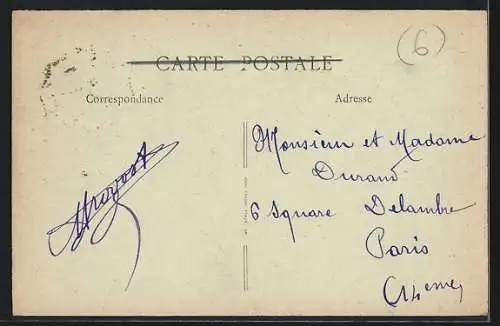 (6)
CARTE POSTALE
Correspondance
Adresse
Monsieur et Madame
Durand
6 Square Delambre
Paris
(14eme)